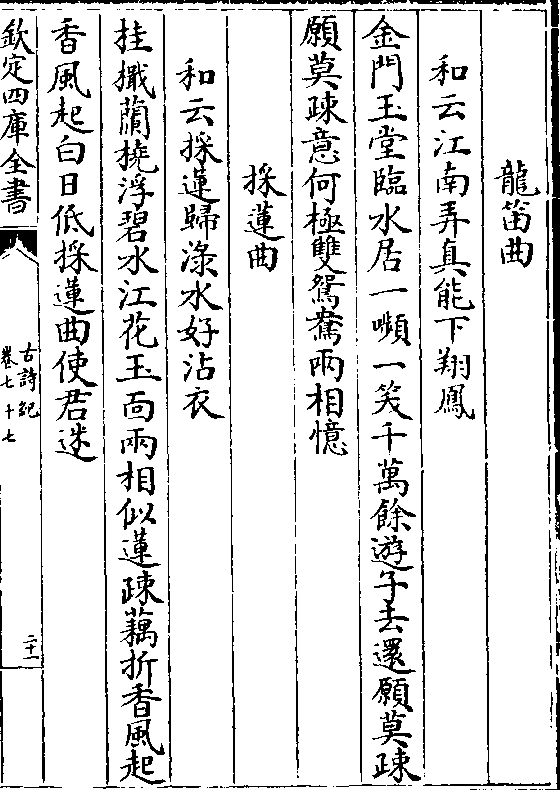 龍笛曲
和云江南弄真能下翔鳳
金門玉堂臨水居一嚬一笑千萬餘遊子去還願莫疎
願莫疎意何極雙鴛鴦兩相憶
採蓮曲
和云採蓮歸淥水好沾衣
桂檝蘭橈浮碧水江花玉面兩相似蓮疎藕折香風起
香風起白日低採蓮曲使君迷
欽定四庫全書
古詩紀
卷七十七
二十一